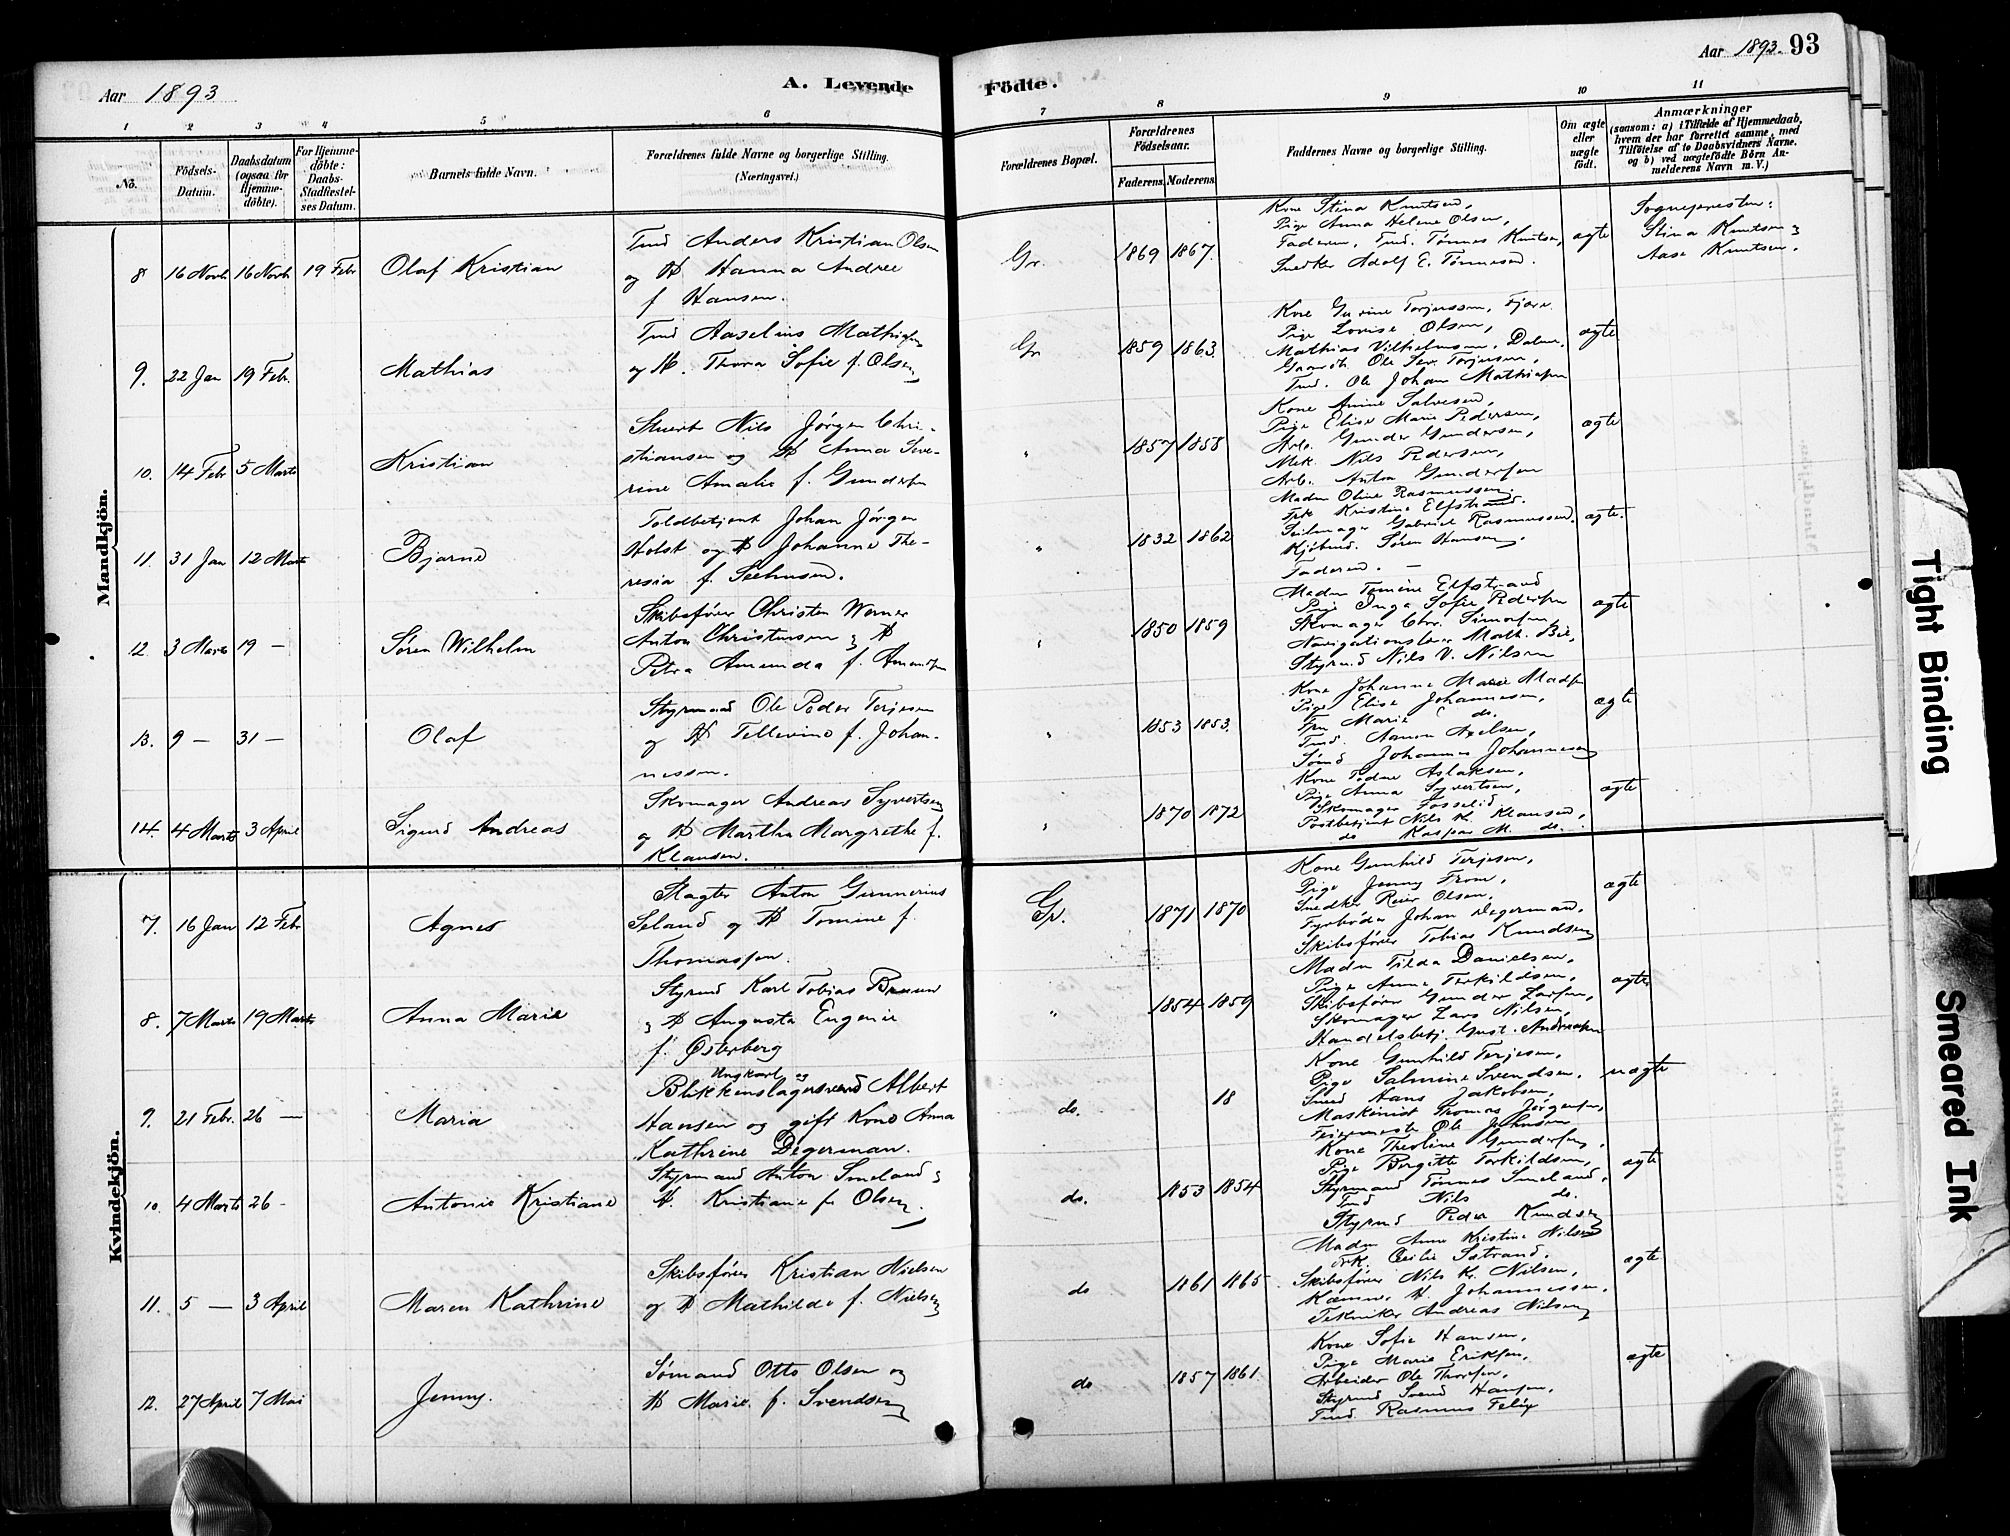 Aar 1893
A. Levende
Födte.
Aar 1893. 93
1 2 3 4 5 6 7 8 9 10 11
No.
Födsels-Datum.
Daabsdatum (ogsaa for Hjemmedöbte).
For Hjemmedöbte: Daabs-Stadfæstelses Datum.
Barnets fulde Navn.
Forældrenes fulde Navne og borgerlige Stilling. (Næringsvei.)
Forældrenes Bopæl.
Forældrenes Födselsaar.
Faderens. Moderens.
Faddernes Navne og borgerlige Stilling.
Om ægte eller uægte födt.
Anmærkninger
(saasom: a) i Tilfælde af Hjemmedaab, hvem der har forrettet samme, med Tilföielse af to Daabsvidners Navne. og b) ved uægtefödte Börn Anmelderens Navn m. V.)
Mandkjön.
8 16 Novb 16 Novb 19 Febr Olaf Kristian
Tmd Anders Kristian Olsen
og H Hanna Andree
f Hansen.
Gr. 1869 1867.
Kone Stina Knutsen,
Pige Anna Helene Olsen,
Faderen, Tmd. Tønnes Knutsen,
Snedker Adolf E. Tønnesen.
ægte
Sognepresten:
Stina Knutsen og
Aase Knutsen.
9. 22 Jan 19 Febr. Mathias
Tmd Aaselius Mathisen
og H. Thora Sofie f. Olsen
Gr 1859 1863.
Kone Gurine Torjussen, Fjære
Pige Lovise Olsen,
Mathias Vilhelmsen, Dalen.
Gaardb. Ole Sev. Torjusen,
Tmd. Ole Johan Mathiesen
ægte
10. 14 Febr 5 Marts Kristian
Stuert Nils Jørgen Chri-
stiansen og H Anna Seve-
rine Amalie f. Gundersen
" 1857 1858
Kone Anine Salvesen,
Pige Elise Marie Pedersen,
Arb. Gunder Gundersen,
Mek. Nils Pedersen,
Arb. Anton Gundersen
ægte
11. 31 Jan 12 Marts Bjarne
Toldbetjent Johan Jörgen
Holst og H Johanne The-
resia f. Seehusen.
" 1832 1862
Madm Oline Rasmussen.
Frk Kristine Elfstrand.
Seilmager Gabriel Rasmussen.
Kjöbmd. Søren Hansen,
Faderen. —
ægte.
12. 3 Marts 19 — Søren Wilhelm
Skibsfører Christen Werner
Anton Christensen og H
Petra Amunda f. Amundsen
" 1850 1859
Madm Tomine Elfstrand
Pige Inga Sofie Pedersen
Skomager Chr. Simonsen,
Navigationslærer Math. Bie,
Styrmd Nils V. Nilsen
ægte
13. 9 — 31 — Olaf
Styrmand Ole Peder Terjesen
og H Tellevine f. Johan-
nessen.
" 1853 1853.
Kone Johanne Marie Madsen
Pige Elise Johannesen,
Frn Marie do.
Tmd. Aanon Axelsen,
Sømd Johannes Johannesen
ægte
14. 4 Marts 3 April Sigurd Andreas
Skomager Andreas Syvertsen
og H Martha Margrethe f.
Klausen.
" 1870 1872
Kone Tedne Aslaksen,
Pige Anna Syvertsen,
Skomager Fosselid
Postbetjent Nils K. Klausen,
do Kaspar M. do.
ægte
Kvindekjön.
7. 16 Jan 12 Febr Agnes
Slagter Anton Gunnerius
Seland og H Tomine f.
Thomassen.
Gr. 1871 1870
Kone Gunhild Terjesen,
Pige Jenny From,
Snedker Reier Olsen,
Fyrbøder Johan Degerman,
Skibsfører Tobias Knudsen
ægte
8. 7 Marts 19 Marts Anna Marie
Styrmd Karl Tobias Bruun
og H Augusta Eugenie
f. Østerberg
" 1854 1859
Madm Tilda Danielsen,
Pige Anne Terkildsen,
Skibsfører Gunder Larsen,
Skomager Lars Nilsen,
Handelsbetj. Gust. Andreasen
ægte
9. 21 Febr. 26 — Maria
Ungkarl og
Blikkenslagersvend Albert
Hansen og gift Kone Anna
Kathrine Degerman.
do. 18
Kone Gunhild Terjesen,
Pige Salmine Svendsen,
Smed Hans Jakobsen,
Maskinist Thomas Jørgensen,
Feiermester Ole Johnsen
uægte
10. 4 Marts 26 - Antonie Kristiane
Styrmand Anton Smeland og
H. Kristiane f. Olsen.
do. 1853 1854
Kone Theoline Gundersen,
Pige Bergitte Terkildsen,
Styrmand Tønnes Smeland,
Tmd Nils do.
Styrmd Peder Knudsen
ægte
11. 5 — 3 April Maren Kathrine
Skibsfører Kristian Nielsen
og H Mathilde f. Nielsen
do 1861 1865
Madm Anne Kristine Nilsen
Frk. Cecilie Sætrand.
Skibsfører Nils Kr. Nilsen,
Kæmner H Johannessen.
Tekniker Andreas Nilsen
ægte
12. 27 April 7 Mai Jenny.
Sømand Otto Olsen og
H Marie f. Svendsen
do 1857 1861.
Kone Sofie Hansen,
Pige Marie Eriksen,
Arbeider Ole Thorsen,
Styrmd Svend Hansen,
Tmd. Rasmus Felix
ægte
Tight Binding
Smeared Ink